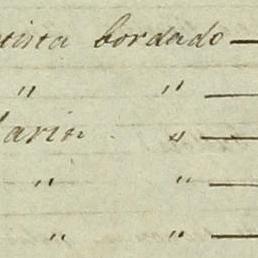 tista bordado —
" " —
larin " —
" " —
" " —